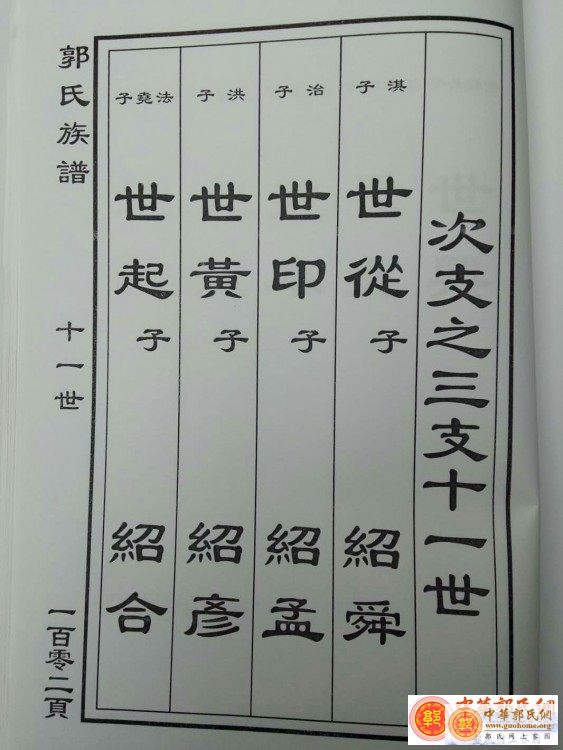 次支之三支十一世
淇子
世從子 紹舜
治子
世印子 紹孟
洪子
世黃子 紹彥
法堯子
世起子 紹合
郭氏族譜
十一世
一百零二頁
中華郭氏網
www.guohome.org
郭氏网上家园